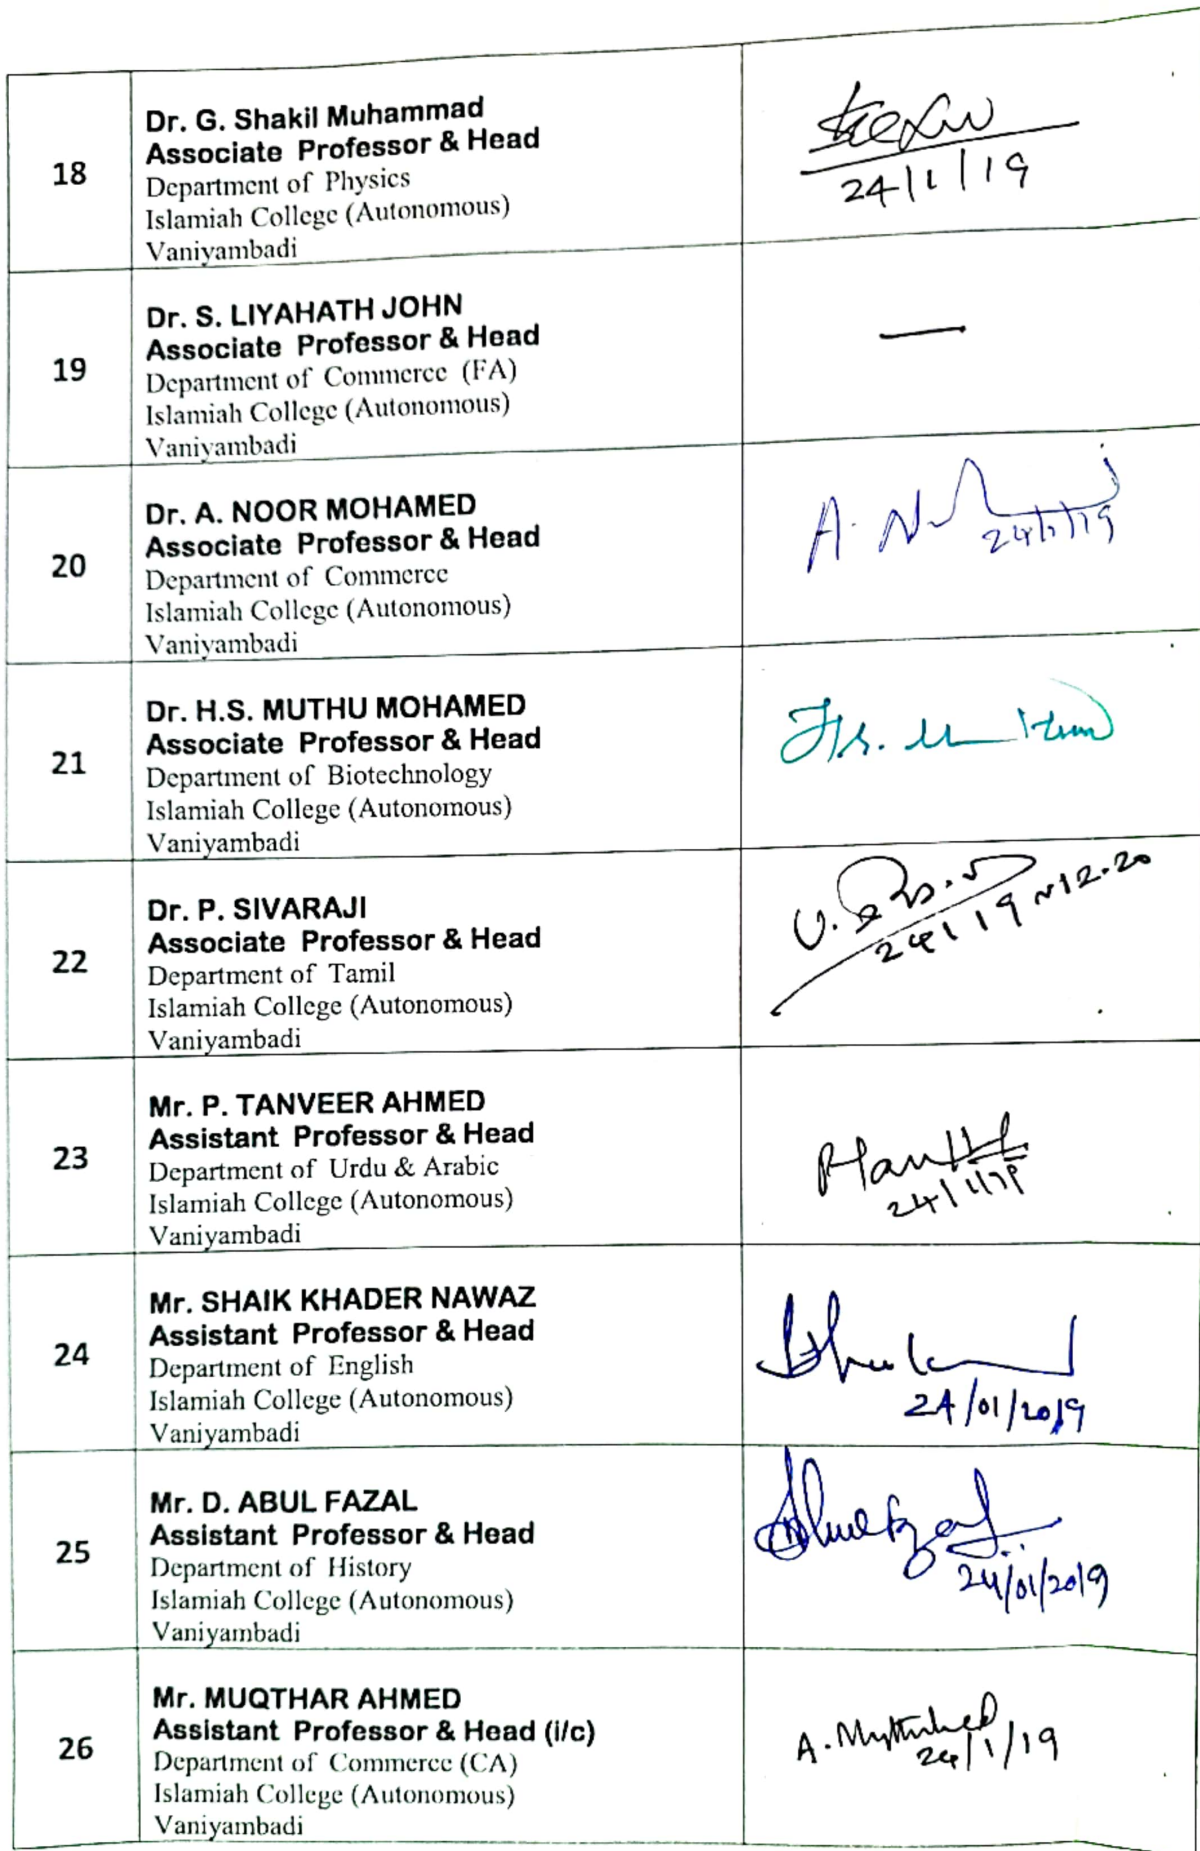 18
Dr. G. Shakil Muhammad
Associate Professor & Head
Department of Physics
Islamiah College (Autonomous)
Vaniyambadi
24/1/19
19
Dr. S. LIYAHATH JOHN
Associate Professor & Head
Department of Commerce (FA)
Islamiah College (Autonomous)
Vaniyambadi
—
20
Dr. A. NOOR MOHAMED
Associate Professor & Head
Department of Commerce
Islamiah College (Autonomous)
Vaniyambadi
24/1/19
21
Dr. H.S. MUTHU MOHAMED
Associate Professor & Head
Department of Biotechnology
Islamiah College (Autonomous)
Vaniyambadi
22
Dr. P. SIVARAJI
Associate Professor & Head
Department of Tamil
Islamiah College (Autonomous)
Vaniyambadi
23
Mr. P. TANVEER AHMED
Assistant Professor & Head
Department of Urdu & Arabic
Islamiah College (Autonomous)
Vaniyambadi
24/1/19
24
Mr. SHAIK KHADER NAWAZ
Assistant Professor & Head
Department of English
Islamiah College (Autonomous)
Vaniyambadi
24/01/2019
25
Mr. D. ABUL FAZAL
Assistant Professor & Head
Department of History
Islamiah College (Autonomous)
Vaniyambadi
24/01/2019
26
Mr. MUQTHAR AHMED
Assistant Professor & Head (i/c)
Department of Commerce (CA)
Islamiah College (Autonomous)
Vaniyambadi
24/1/19